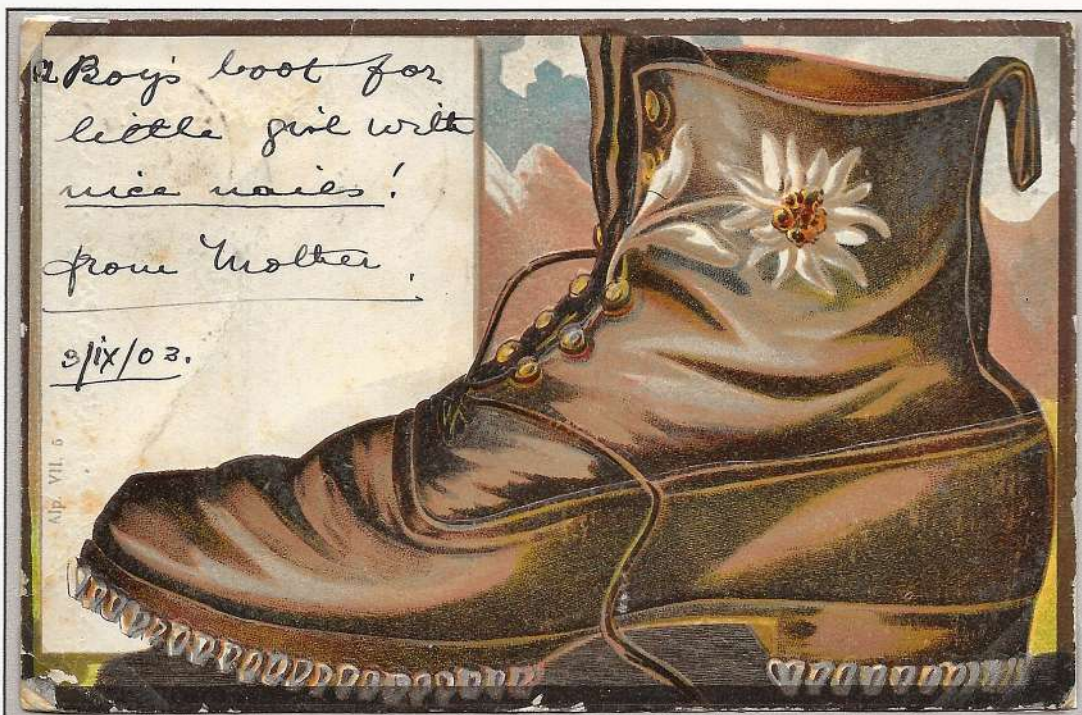 a Boy's boot for
little girl with
nice nailes!
from Mother.
3/IX/03.
Alp. VII. 5